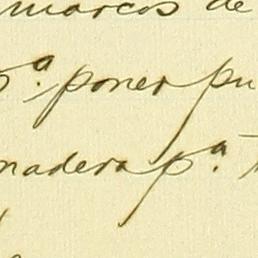 marcos de
p.ª poner pu
madera p.ª